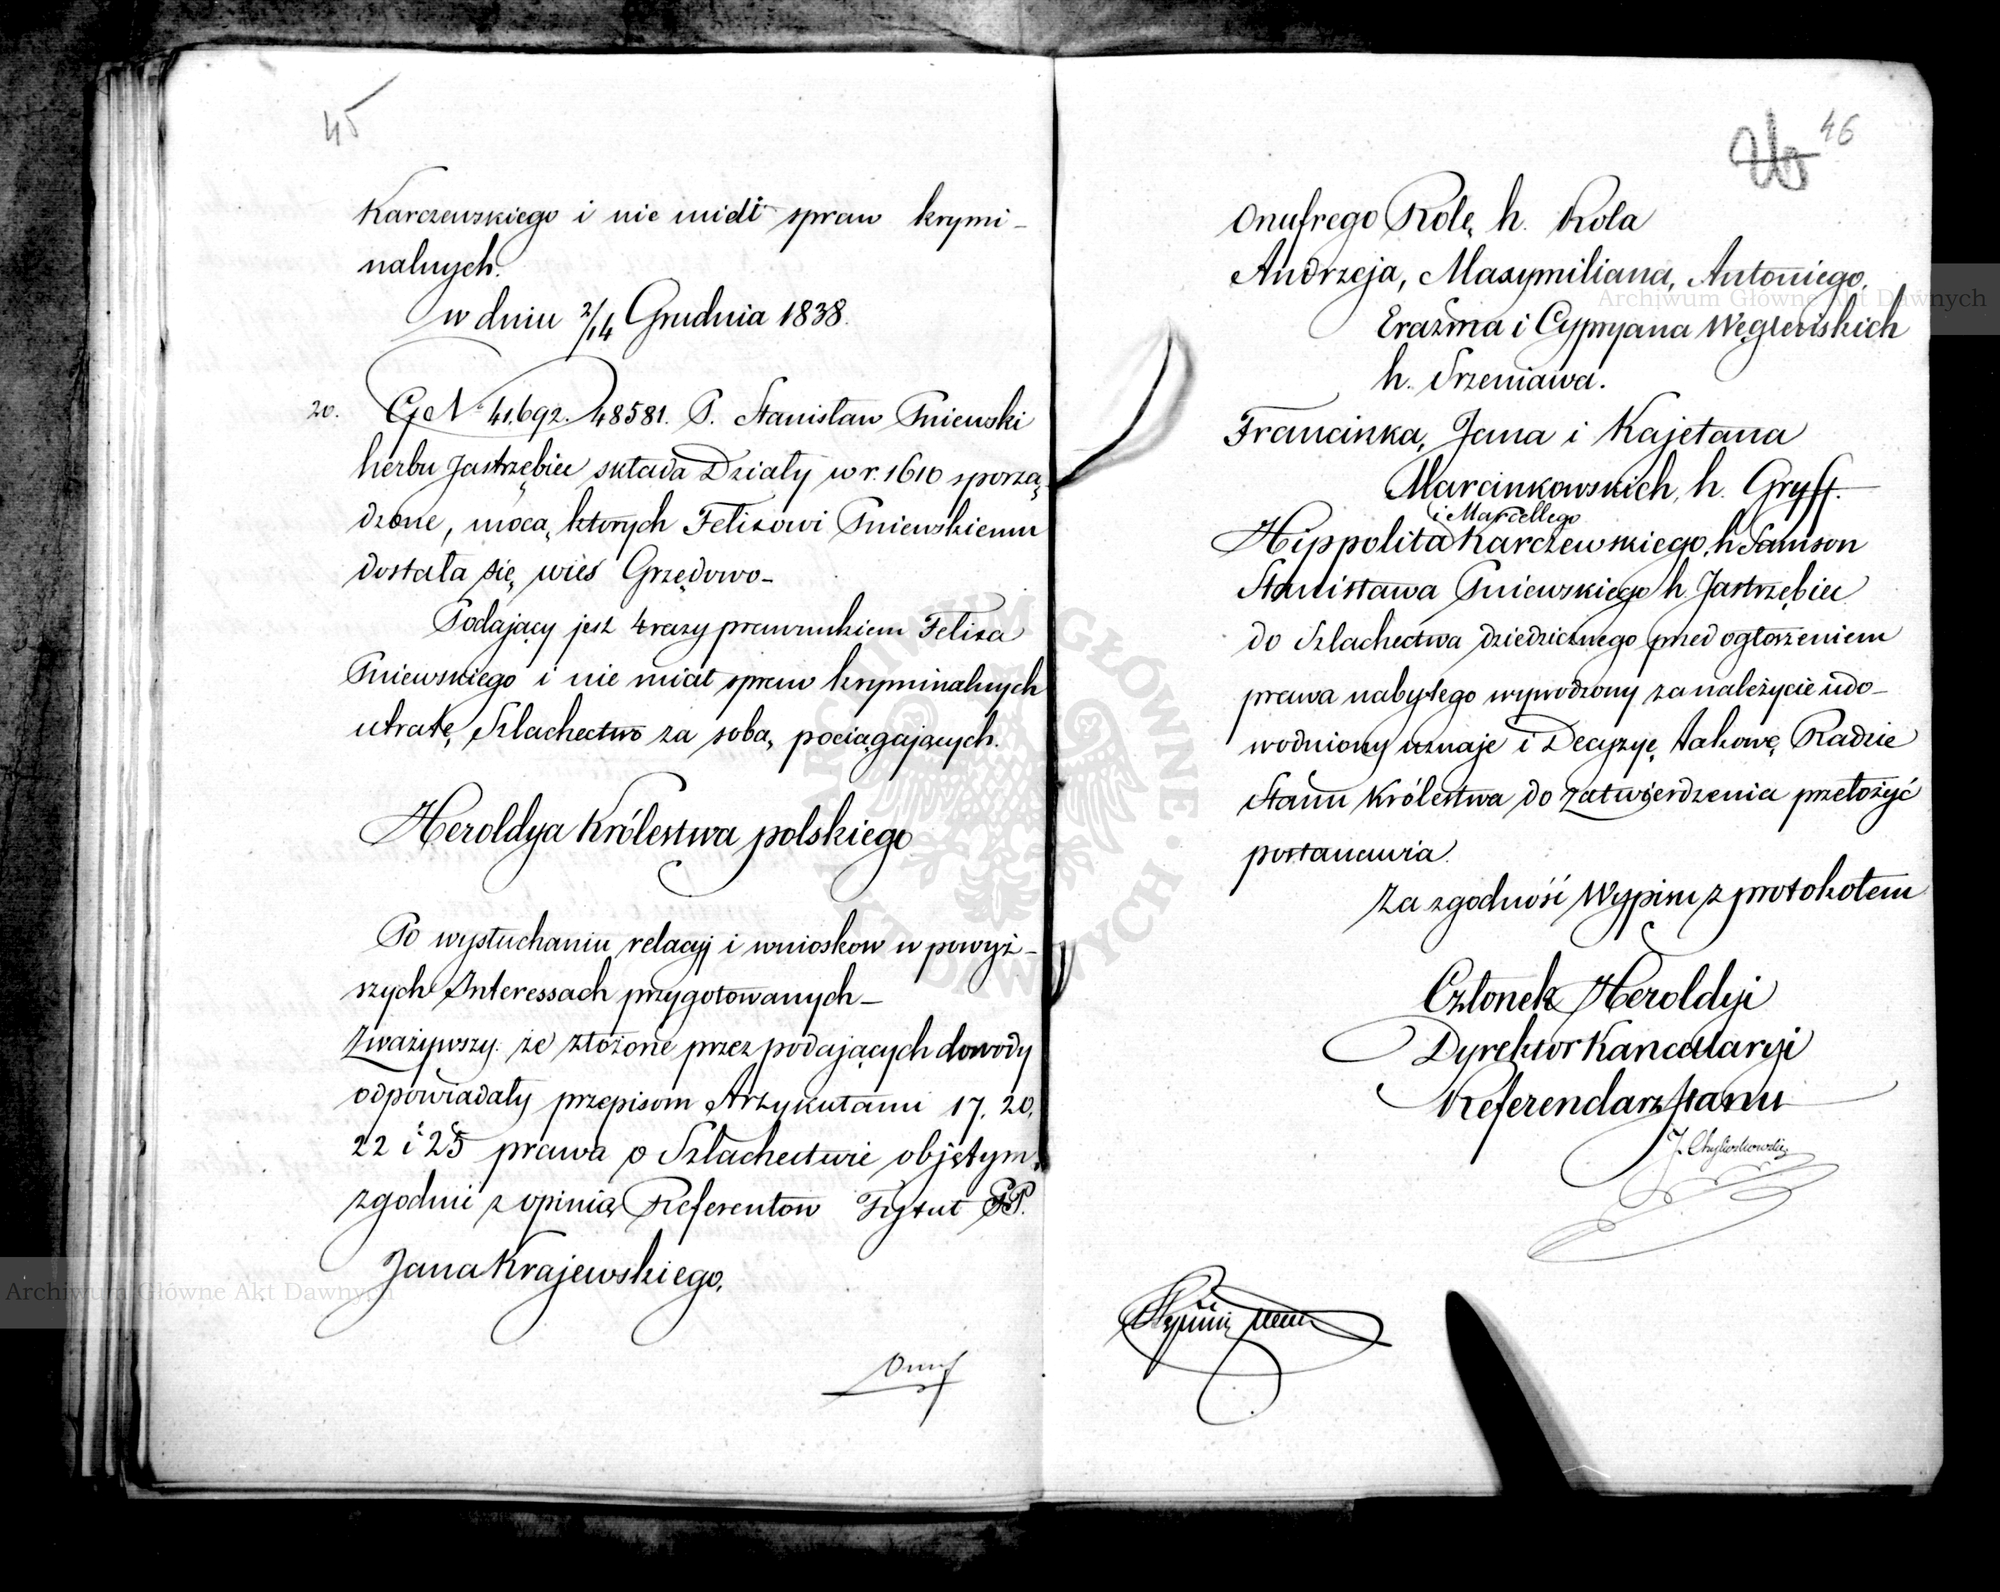 45
Karczewskiego i nie miał spraw krymi-
nalnych.
w dniu 2/14 Grudnia 1838.
20. G. N. 41.692. 48581. P. Stanisław Pniewski
herbu Jastrzębiec składa Działy w r. 1610 sporzą-
dzone, mocą których Felixowi Pniewskiemu
dostała się wieś Grzędowo-
Podający jest 4 razy prawnukiem Felixa
Pniewskiego i nie miał spraw kryminalnych
utratę Szlachectwo za sobą pociągających.
Heroldya Królestwa polskiego
Po wysłuchaniu relacyj i wniosków w powyż-
szych Interessach przygotowanych-
Zważywszy że złożone przez podających dowody
odpowiadały przepisom Artykułami 17. 20.
22 i 25 prawa o Szlachectwie objętym,
zgodnie z opinią Referentów Tytuł PP.
Jana Krajewskiego,
Onuf
46
Onufrego Rolę h. Rola
Andrzeja, Maxymiliana, Antoniego,
Erazma i Cypryana Węgleńskich
h. Srzeniawa.
Franciszka, Jana i Kajetana
Marcinkowskich, h. Gryff.
i Marcellego
Hippolita Karczewskiego, h Samson
Stanisława Pniewskiego h. Jastrzębiec
do Szlachectwa dziedzicznego przed ogłoszeniem
prawa nabytego wywodzony za należycie udo-
wodniony uznaje i Decyzyę takową Radzie
Stanu Królestwa do Zatwierdzenia przełożyć
postanawia.
Za zgodność Wypisu z protokołem
Członek Heroldyi
Dyrektor Kancellaryi
Referendarz Stanu
Archiwum Główne Akt Dawnych
Archiwum Główne Akt Dawnych
ARCHIWUM GŁÓWNE AKT DAWNYCH